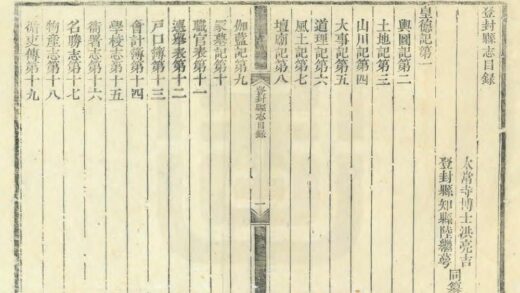 登封縣志目録
太常寺博士洪亮吉
登封縣知縣陸繼萼
同纂
皇德記第一
輿圖記第二
土地記第三
山川記第四
大事記第五
道理記第六
風土記第七
壇廟記第八
登封縣志目録
一
伽藍記第九
冢墓記第十
職官表第十一
選舉表第十二
戸口簿第十三
會計簿第十四
學校志第十五
衙署志第十六
名勝志第十七
物產志第十八
循吏傳第十九